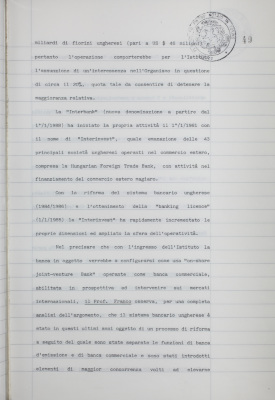 miliardi di fiorini ungheresi (pari a US $ 40 milioni)
pertanto l'operazione comporterebbe per l'Istituto
l'assunzione di un'interessenza nell'Organismo in questione
di circa il tale da consentire di detenere la
maggioranza relativa.
La "Interbank" (nuova denominazione a partire dal
ha iniziato la propria attività il con
il nome di "Interinvest", quale emanazione delle
principali società ungheresi operanti nel commercio estero,
compresa la Hungarian Foreign Trade Bank, con attività nel
finanziamento del commercio estero magiaro.
Con la riforma del sistema bancario ungherese
e l'ottenimento della "banking licence"
la "Interinvest" ha rapidamente incrementato le
proprie dimensioni ed ampliato la sfera dell'operatività.
Nel precisare che con l'ingresso dell'Istituto la
banca in oggetto verrebbe a configurarsi come una
joint-venture Bank" operante come banca commerciale,
abilitata in prospettiva ad intervenire sui mercati
internazionali, il Prof. osserva, per una completa
analisi dell'argomento, che il sistema bancario ungherese è
stato in questi ultimi anni oggetto di un processo di riforma
a seguito del quale sono state separate le funzioni di banca
d'emissione e di banca commerciale e sono stati introdotti
elementi di maggior concorrenza volti ad elevare